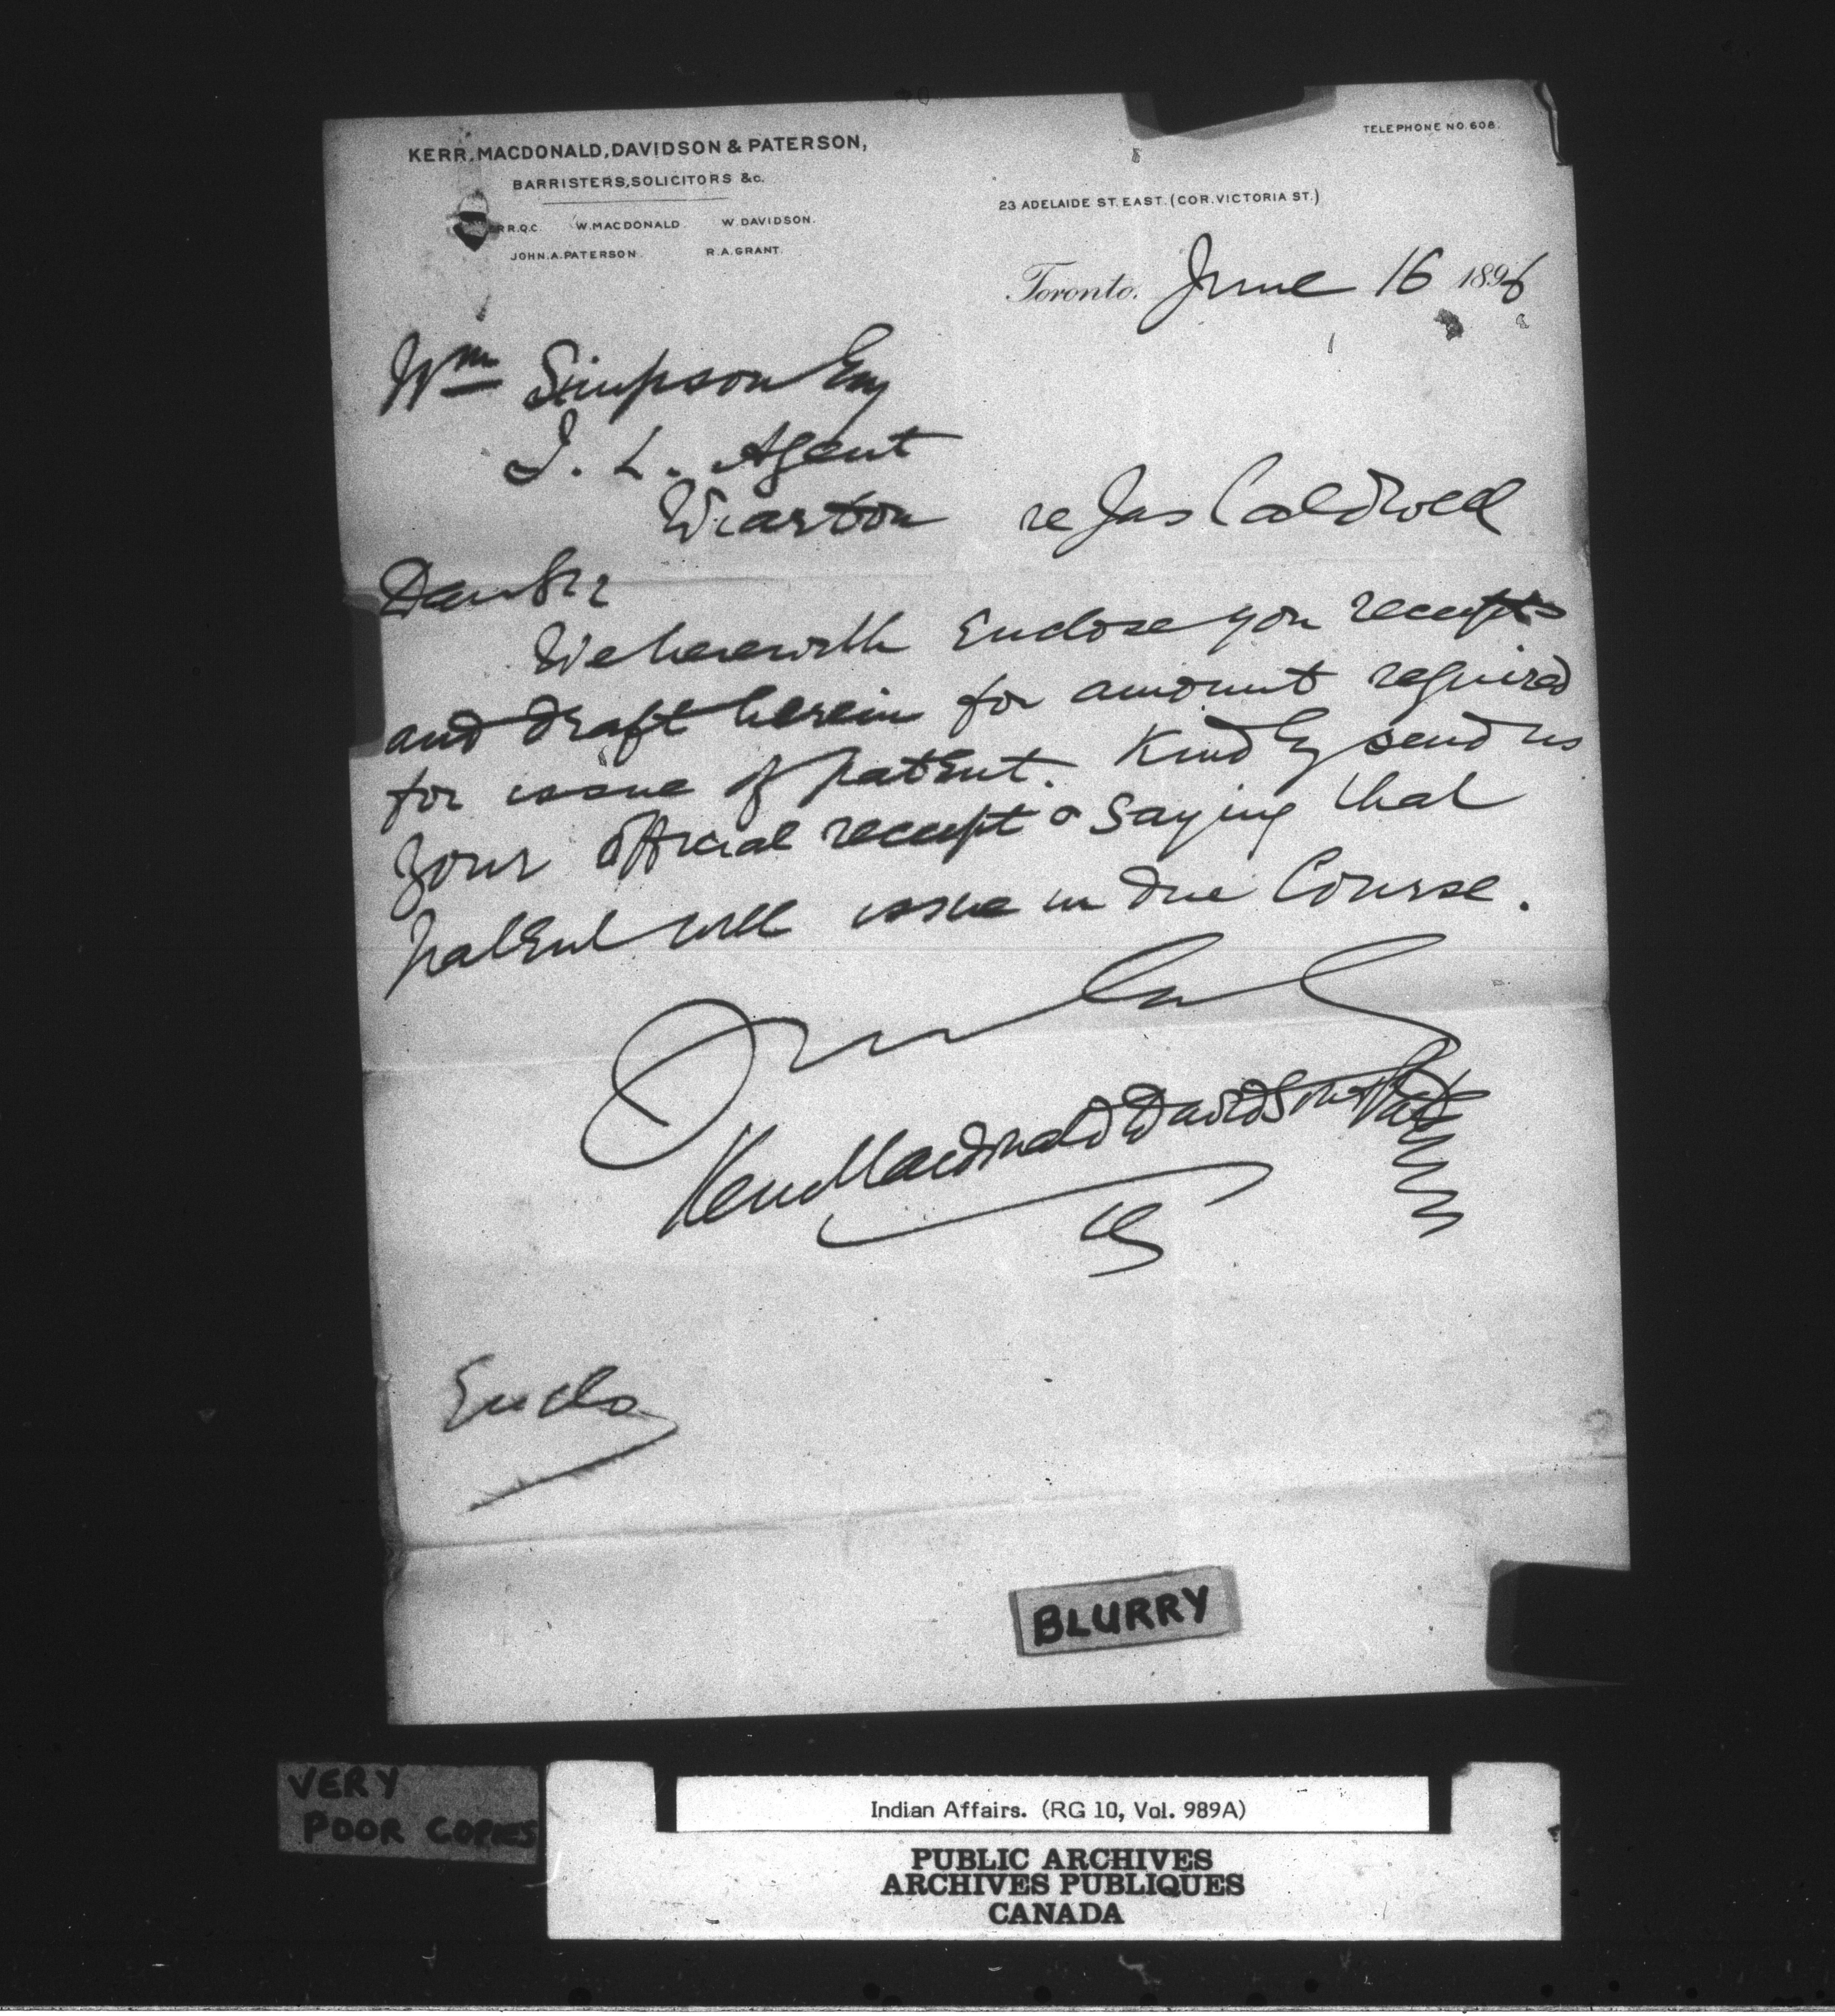 KERR, MACDONALD, DAVIDSON & PATERSON,
TELEPHONE NO. 608.
BARRISTERS, SOLICITORS &c.
23 ADELAIDE ST. EAST. (COR. VICTORIA ST.)
RR. Q.C. W. MACDONALD. W. DAVIDSON.
JOHN. A. PATERSON. R. A. GRANT.
Toronto. June 16 1896
Wm Simpson Esq
I. L. Agent
Wiarton re Jas Caldwell
Dear Sir
We herewith enclose you receipts
and draft herein for amount required
for issue of patent. Kindly send us
your official receipt & saying that
patent will issue in due course.
Yours truly
Kerr Macdonald Davidson & Paterson
Encls
BLURRY
VERY
POOR COPIES
Indian Affairs. (RG 10, Vol. 989A)
PUBLIC ARCHIVES
ARCHIVES PUBLIQUES
CANADA